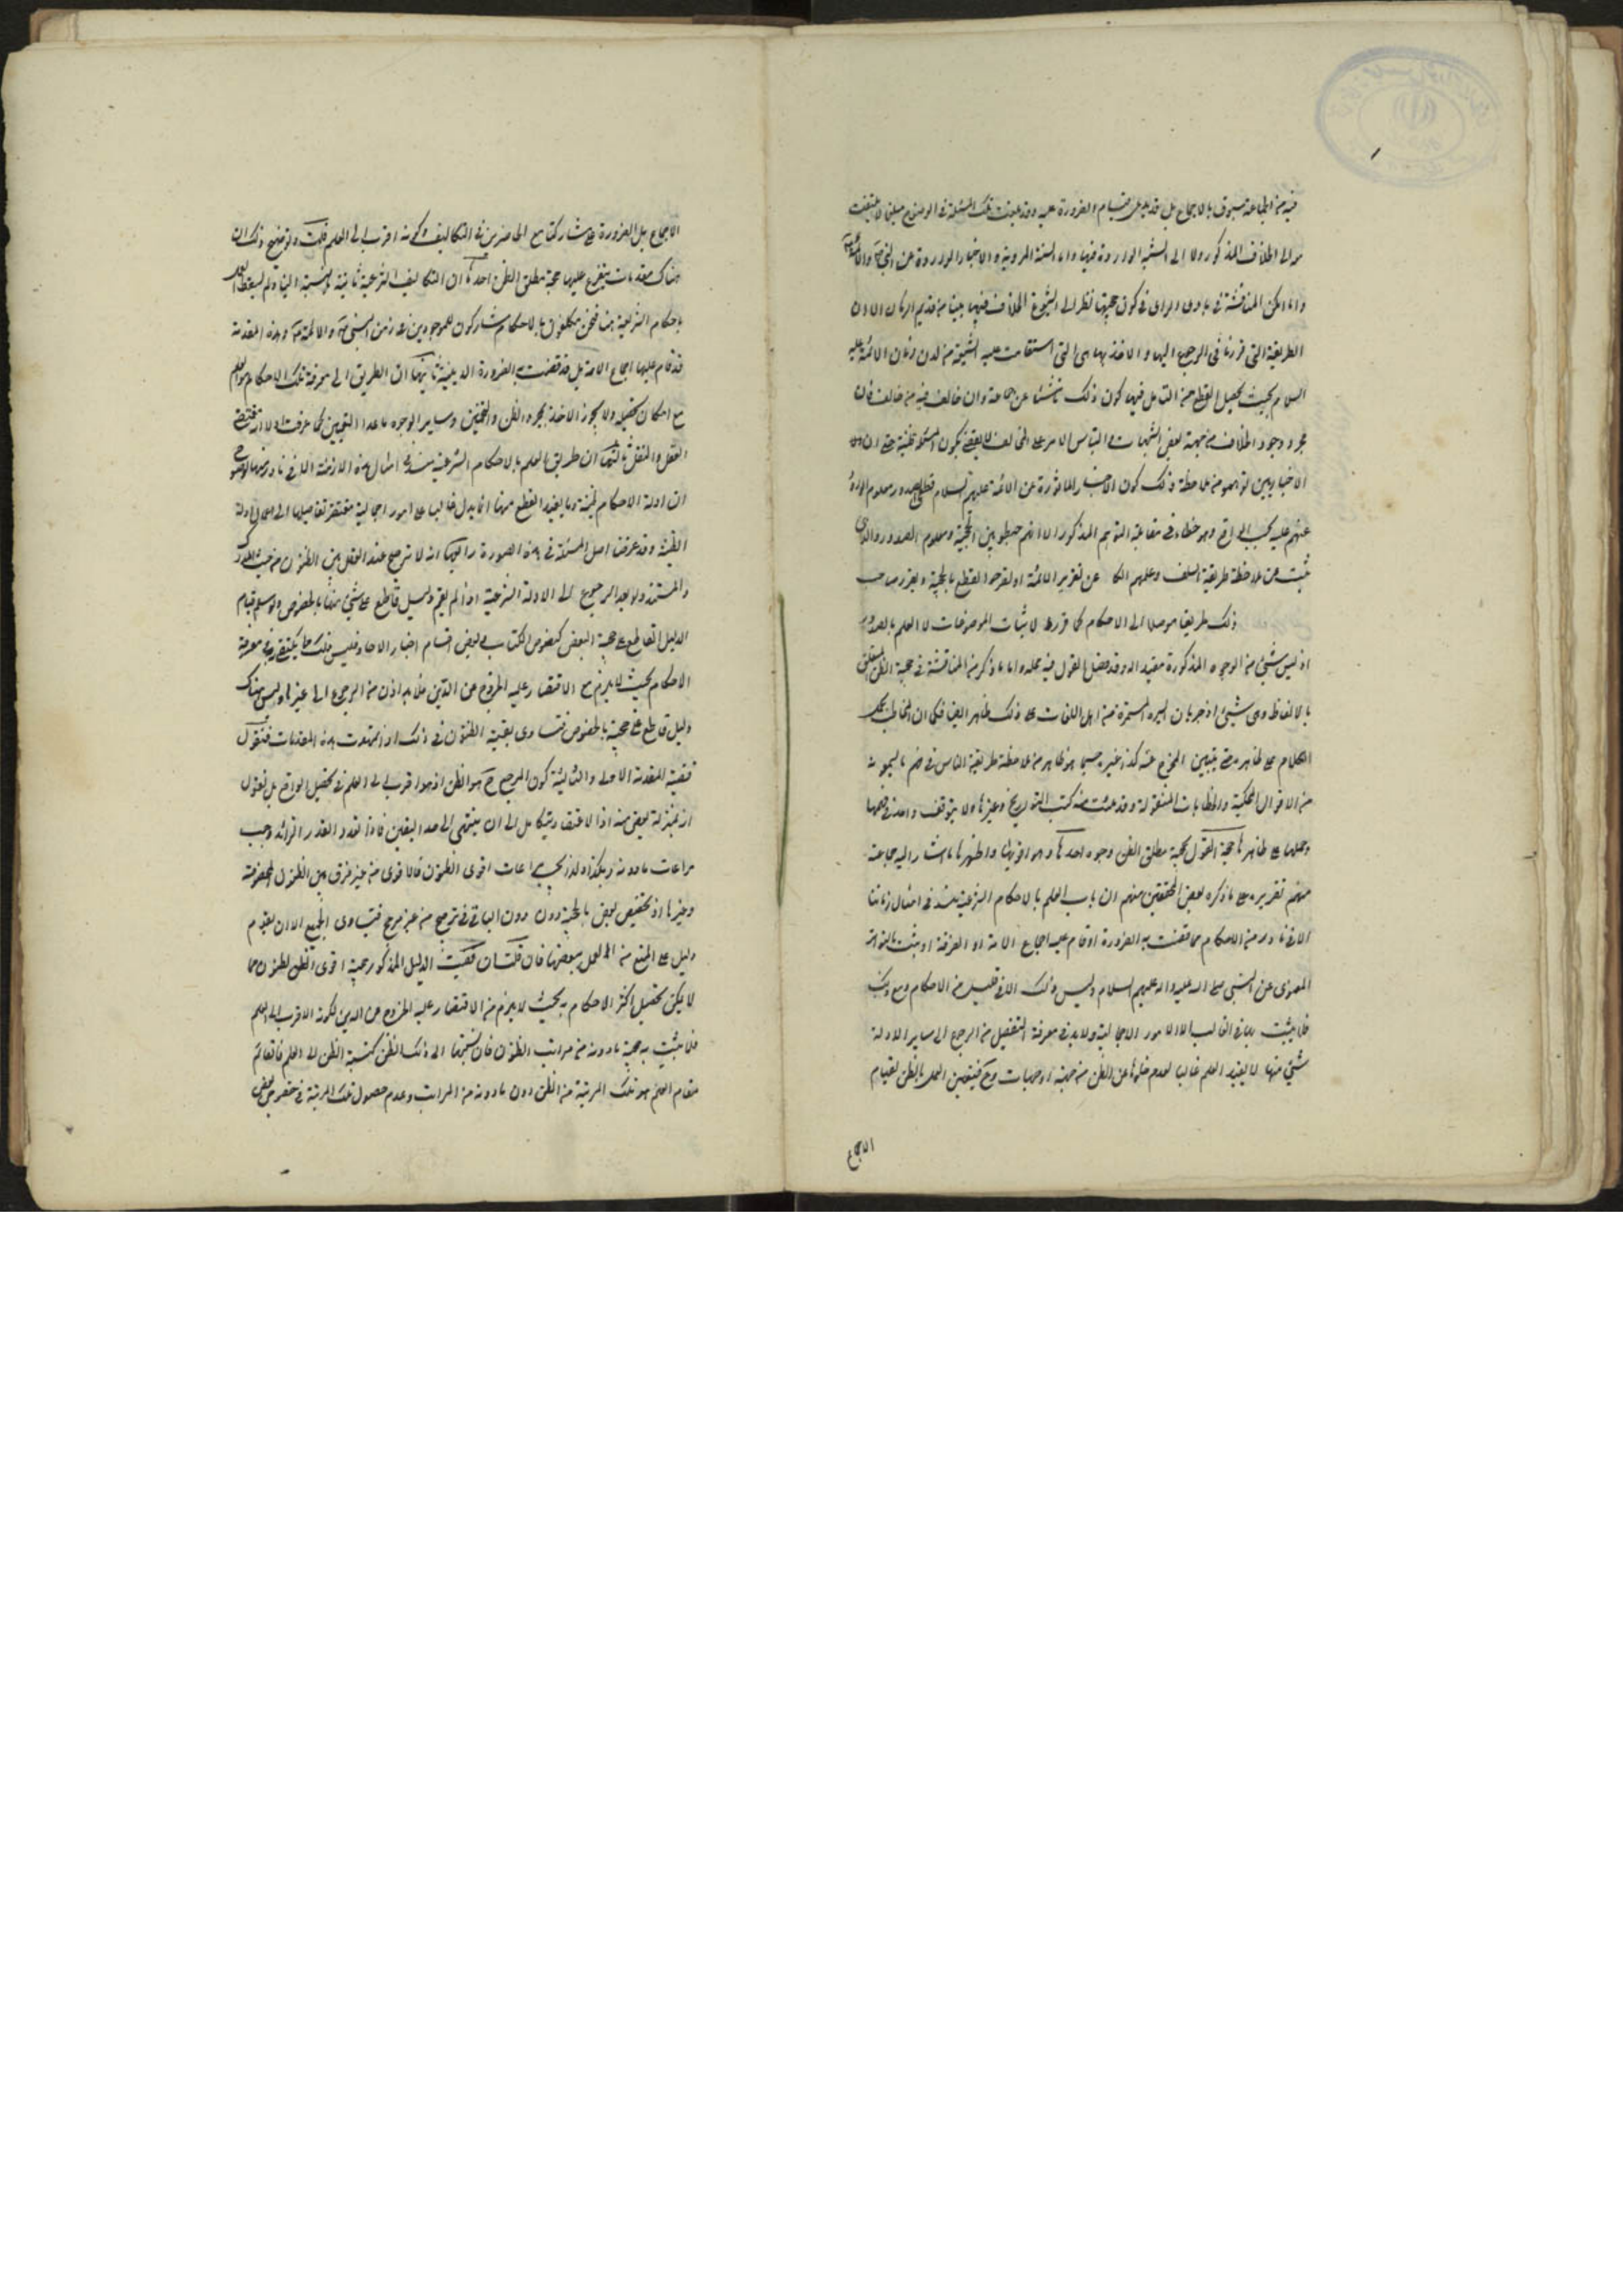 فيه من الجماعة مسبوق بالاجماع بل قد يدعى قيام الضرورة عليه وقد بلغت تلك المسئلة في الوضوح مبلغا لا يلتفت
معه الى الخلاف المذكور ولا الى الشبه الواردة فيها واما السنة المروية والاخبار الواردة عن النبي والائمة
وان امكن المناقشة في بادي الراي في كون حجيتها نظرا الى شيوع الخلاف فيها بيننا من قديم الزمان الا ان
الطريقة التي قررناها في الرجوع اليها والاخذ بها هي التي استقامت عليه الشيعة من لدن زمان الائمة عليهم
السلام بحيث يحصل القطع من التامل فيها كون ذلك ناشئا عن وان خالف فيه من خالف فان
مجرد وجود الخلاف من جهة بعض الشبهات والتباس الامر على المخالف لا يقضي بكون المسئلة ظنية حتى ان
الاخباريين توهموا من ملاحظة ذلك كون الاخبار الماثورة عن الائمة عليهم السلام قطعي الصدور معلوم الورود
عنهم عليه بحسب الواقع وهو خطاء في مقابلة التوهم المذكور الا انهم خبطوا بين الحجية ومعلوم الصدور والذي
ثبت من ملاحظة طريقة السلف وعلمهم عن تقرير الائمة او تصريحهم القطع بالحجية وتقرير صاحب
ذلك طريقا موصلا الى الاحكام كما قرر لاثبات الموضوعات لا العلم بالصدور
اذ ليس شيء من الوجوه المذكورة مفيد اله وقد فصل القول فيه محله واما ما ذكر من المناقشة في حجية الظن المتعلق
بالالفاظ وهي شيء اذ جريان السيرة المستمرة من اهل اللغات على ذلك ظاهر ايضا فكما ان المخاطب يحمل
الكلام على ظاهره حتى يتبين الخروج عنه كذا غيره حسبما هو ظاهر من ملاحظة طريقة الناس في فهم ما يسمعونه
من الاقوال المحكية والخطابات المنقولة وقد ملئت منه كتب التواريخ وغيرها ولا يتوقف واحد في فهمها
وحملها على ظاهرها حجة القول بحجية مطلق الظن وجوه احدها وهو اقويها واظهرها ما اشار اليه جماعة
منهم تقريره على ما ذكره بعض المحققين منهم ان باب العلم بالاحكام الشرعية منسد في امثال زماننا
الا في نادر من الاحكام مما قضت به الضرورة او قام عليه اجماع الامة او الفرقة او ثبت بالتواتر
المعنوي عن النبي صلى الله عليه واله عليهم السلام وليس ذلك الا في قليل من الاحكام ومع ذلك
فلا يثبت بها في الغالب الا الامور الاجمالية ولا بد في معرفة التفصيل من الرجوع الى ساير الادلة
شيء منها لا يفيد العلم غالبا لعدم خلوها عن الظن من جهة او جهات وح فيتعين العمل بالظن لقيام
الاجماع
الاجماع بل الضرورة على مشاركتنا مع الحاضرين في التكاليف وكونه اقرب الى العلم قلت وتوضيح ذلك ان
هناك مقدمات يتفرع عليها حجية مطلق الظن احدها ان التكاليف الشرعية ثابتة بالنسبة الينا ولم يسقط العمل
باحكام الشريعة عنا فنحن مكلفون بالاحكام مشاركون للموجودين في زمن النبي والائمة وهذه المقدمة
قد قام عليها اجماع الامة بل قد قضت به الضرورة الدينية ثانيها ان الطريق الى معرفة تلك الاحكام هو العلم
مع امكان تحصيله ولا يجوز الاخذ بمجرد الظن والتخمين وساير الوجوه ما عدا اليقين كما عرفت اولا انه مقتضى
العقل والنقل ثالثها ان طريق العلم بالاحكام الشرعية منسد في امثال هذه الازمنة الا في نادر منها لوضوح
ان ادلة الاحكام ظنية وما يفيد القطع منها انما يدل غالبا على امور اجمالية مفتقر تفاصيلها الى اعمال الادلة
الظنية وقد عرفت اصل المسئلة في هذه الصورة رابعها انه لا ترجيح عند العقل بين الظنون من حيث المدرك
والمستند ولا بعد الرجوع الى الادلة الشرعية اذ لم يقم دليل قاطع على شيء منها بالخصوص ولو سلم قيام
الدليل القاطع على حجية البعض كنصوص الكتاب وبعض اقسام اخبار الاحاد فليس ذلك مما يكتفى به في معرفة
الاحكام بحيث لا يلزم مع الاقتصار عليه الخروج عن الدين فلا بد اذن من الرجوع الى غيرها وليس هناك
دليل قاطع على حجيته بالخصوص فتساوى بقية الظنون في ذلك اذا تمهدت هذه المقدمات فنقول
قضية المقدمة الاولى والثالثة كون المرجع ح هو الظن اذ هو اقرب الى العلم في تحصيل الواقع بل نقول
انه بمنزلة بعض منه اذ الاعتقاد يتكامل الى ان ينتهي الى حد اليقين فاذا تعذر القدر الزائد وجب
مراعات ما دونه وهكذا ولذا يجب مراعات اقوى الظنون فالاقوى من غير فرق بين الظنون المخصوصة
وغيرها اذ تخصيص بعض بالحجية دون الباقي ترجيح من غير مرجح فيتساوى الجميع الا ان يقوم
دليل على المنع من العمل ببعضها فان قلت ان قضية الدليل المذكور حجية اقوى الظن لظنون مما
لا يمكن تحصيل اكثر الاحكام به بحيث لا يلزم من الاقتصار عليه الخروج عن الدين لكونه الاقرب الى العلم
فلا يثبت به حجية ما دونه من مراتب الظنون فان نسبتها الى ذلك الظن كنسبة الظن الى العلم فالقائم
مقام العلم هو تلك المرتبة من الظن دون ما دونه من المراتب وعدم حصول تلك المرتبة في خصوص بعض